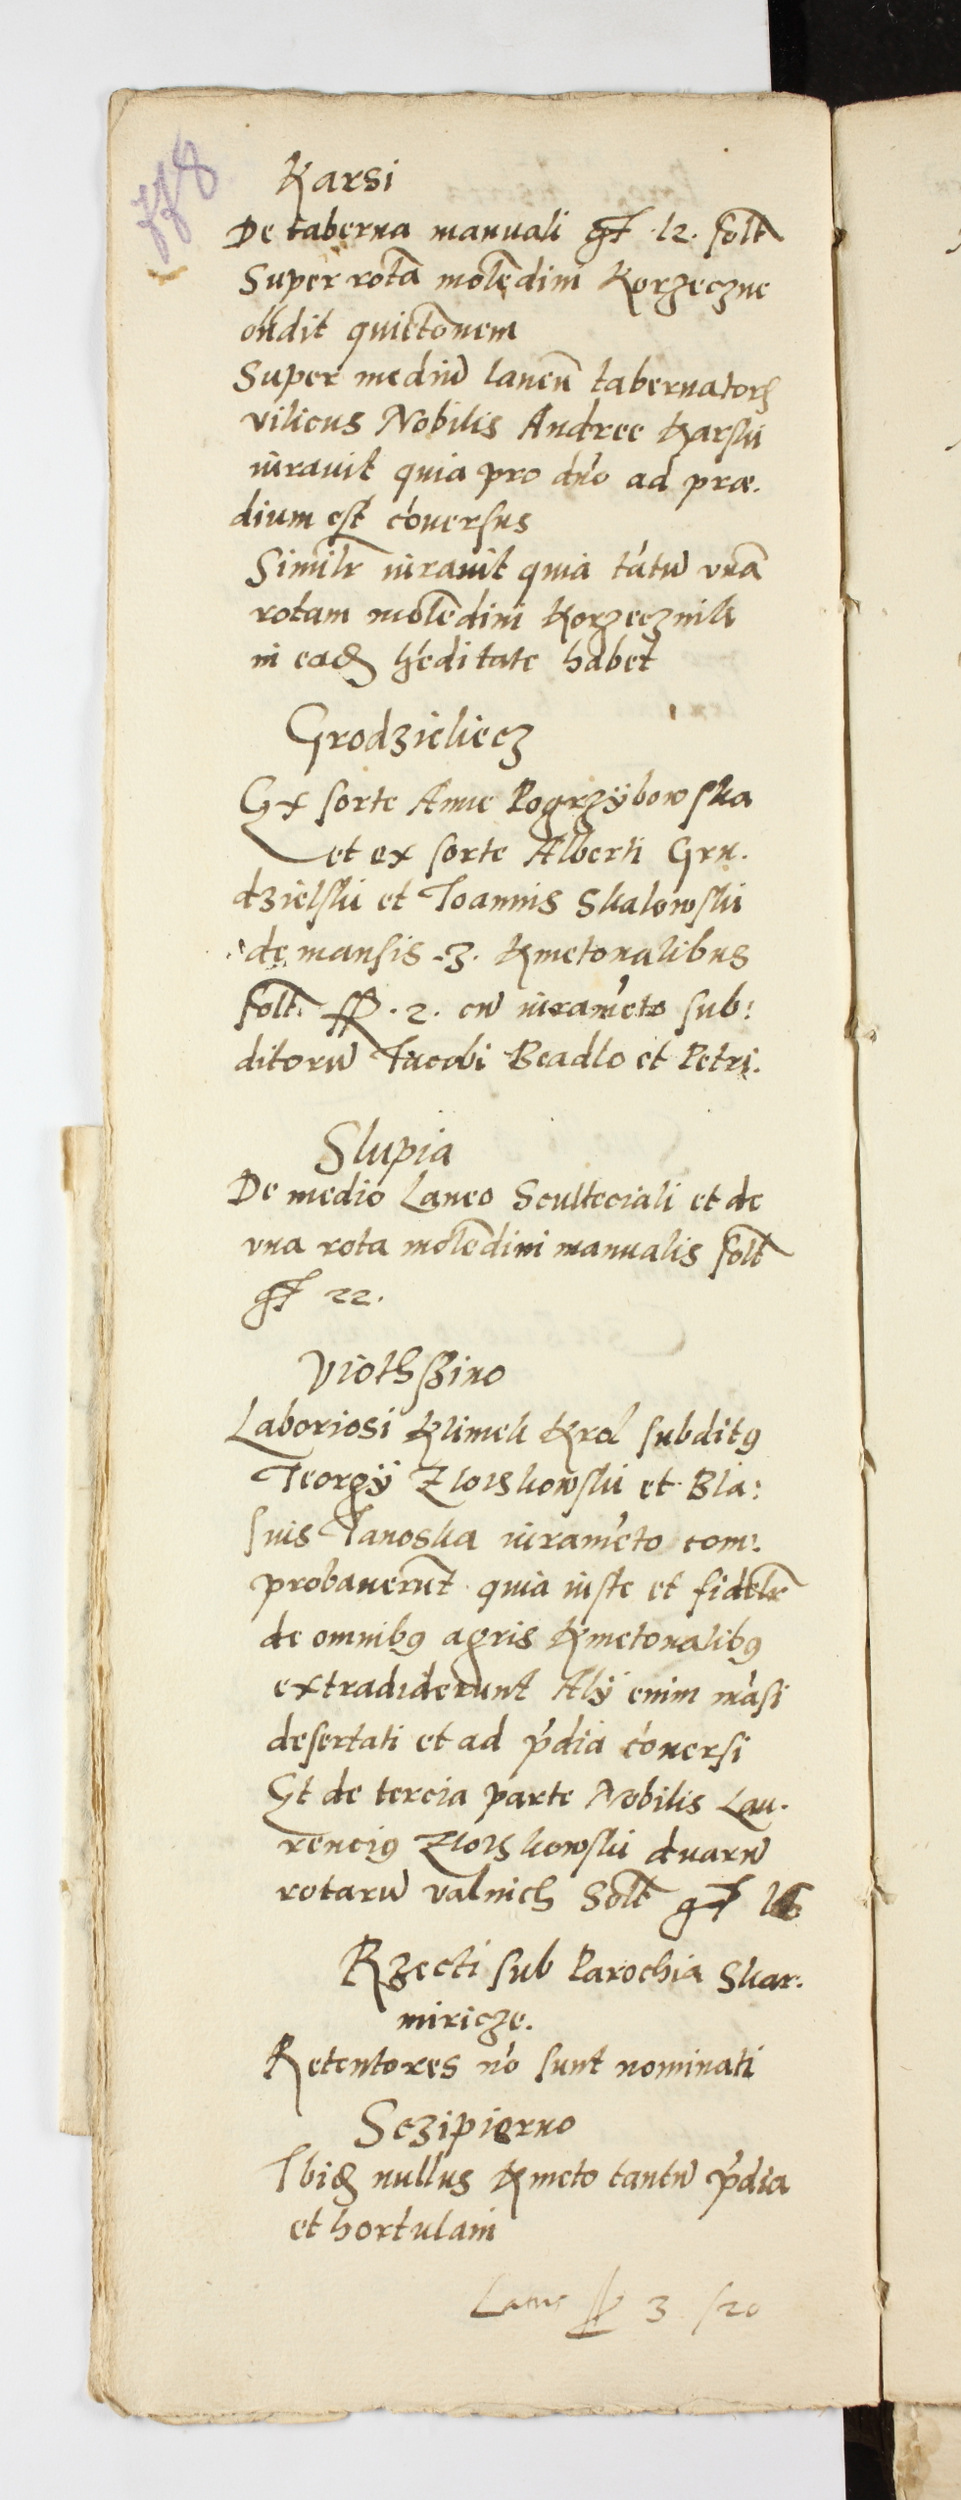 778
Karsi
De taberna manuali gr. 12. solt
Super rotā molēdini Korzeczne
oñdit quictōnem
Super mediū laneū tabernatorꝭ
vilicus Nobilis Andree Karski
iuravit quia pro dño ad præ.
dium est cōversus
Similr iuravit quia tātū vnā
rotam molēdini Korzecznik
in eadꝫ hēditate habet
Grodzieliecz
Ex sorte Anne Pogrzÿbowska
et ex sorte Alberti Gru.
dzielski et Ioannis Skalowski
de mansis .3. Kmetonalibus
solt. ff . 2. cū iuramēto sub:
ditorū Jacobi Beadlo et Petri.
Slupia
De medio Laneo Scultetiali et de
vna rota molēdini manualis solt
gr 22.
Viothszino
Laboriosi Klimek Krol subditꝰ
Jeorgÿ Zloskowski et Bla:
suis Janoska iuramēto com:
probaverūt quia iuste et fidelr
de omnibꝰ agris Kmetonalibꝰ
extradiderunt Alÿ enim māsi
desertati et ad p̄dia cōversi
Et de tercia parte Nobilis Lau.
renciꝰ Zloskowski duarū
rotarū valnich Solt gr
Rzecti sub Parochia Skar.
miricze.
Retentores nō sunt nominati
Sczipierno
Ibidꝫ nullus Kmeto tantū p̄dia
et hortulani
Latus ff 3 /20